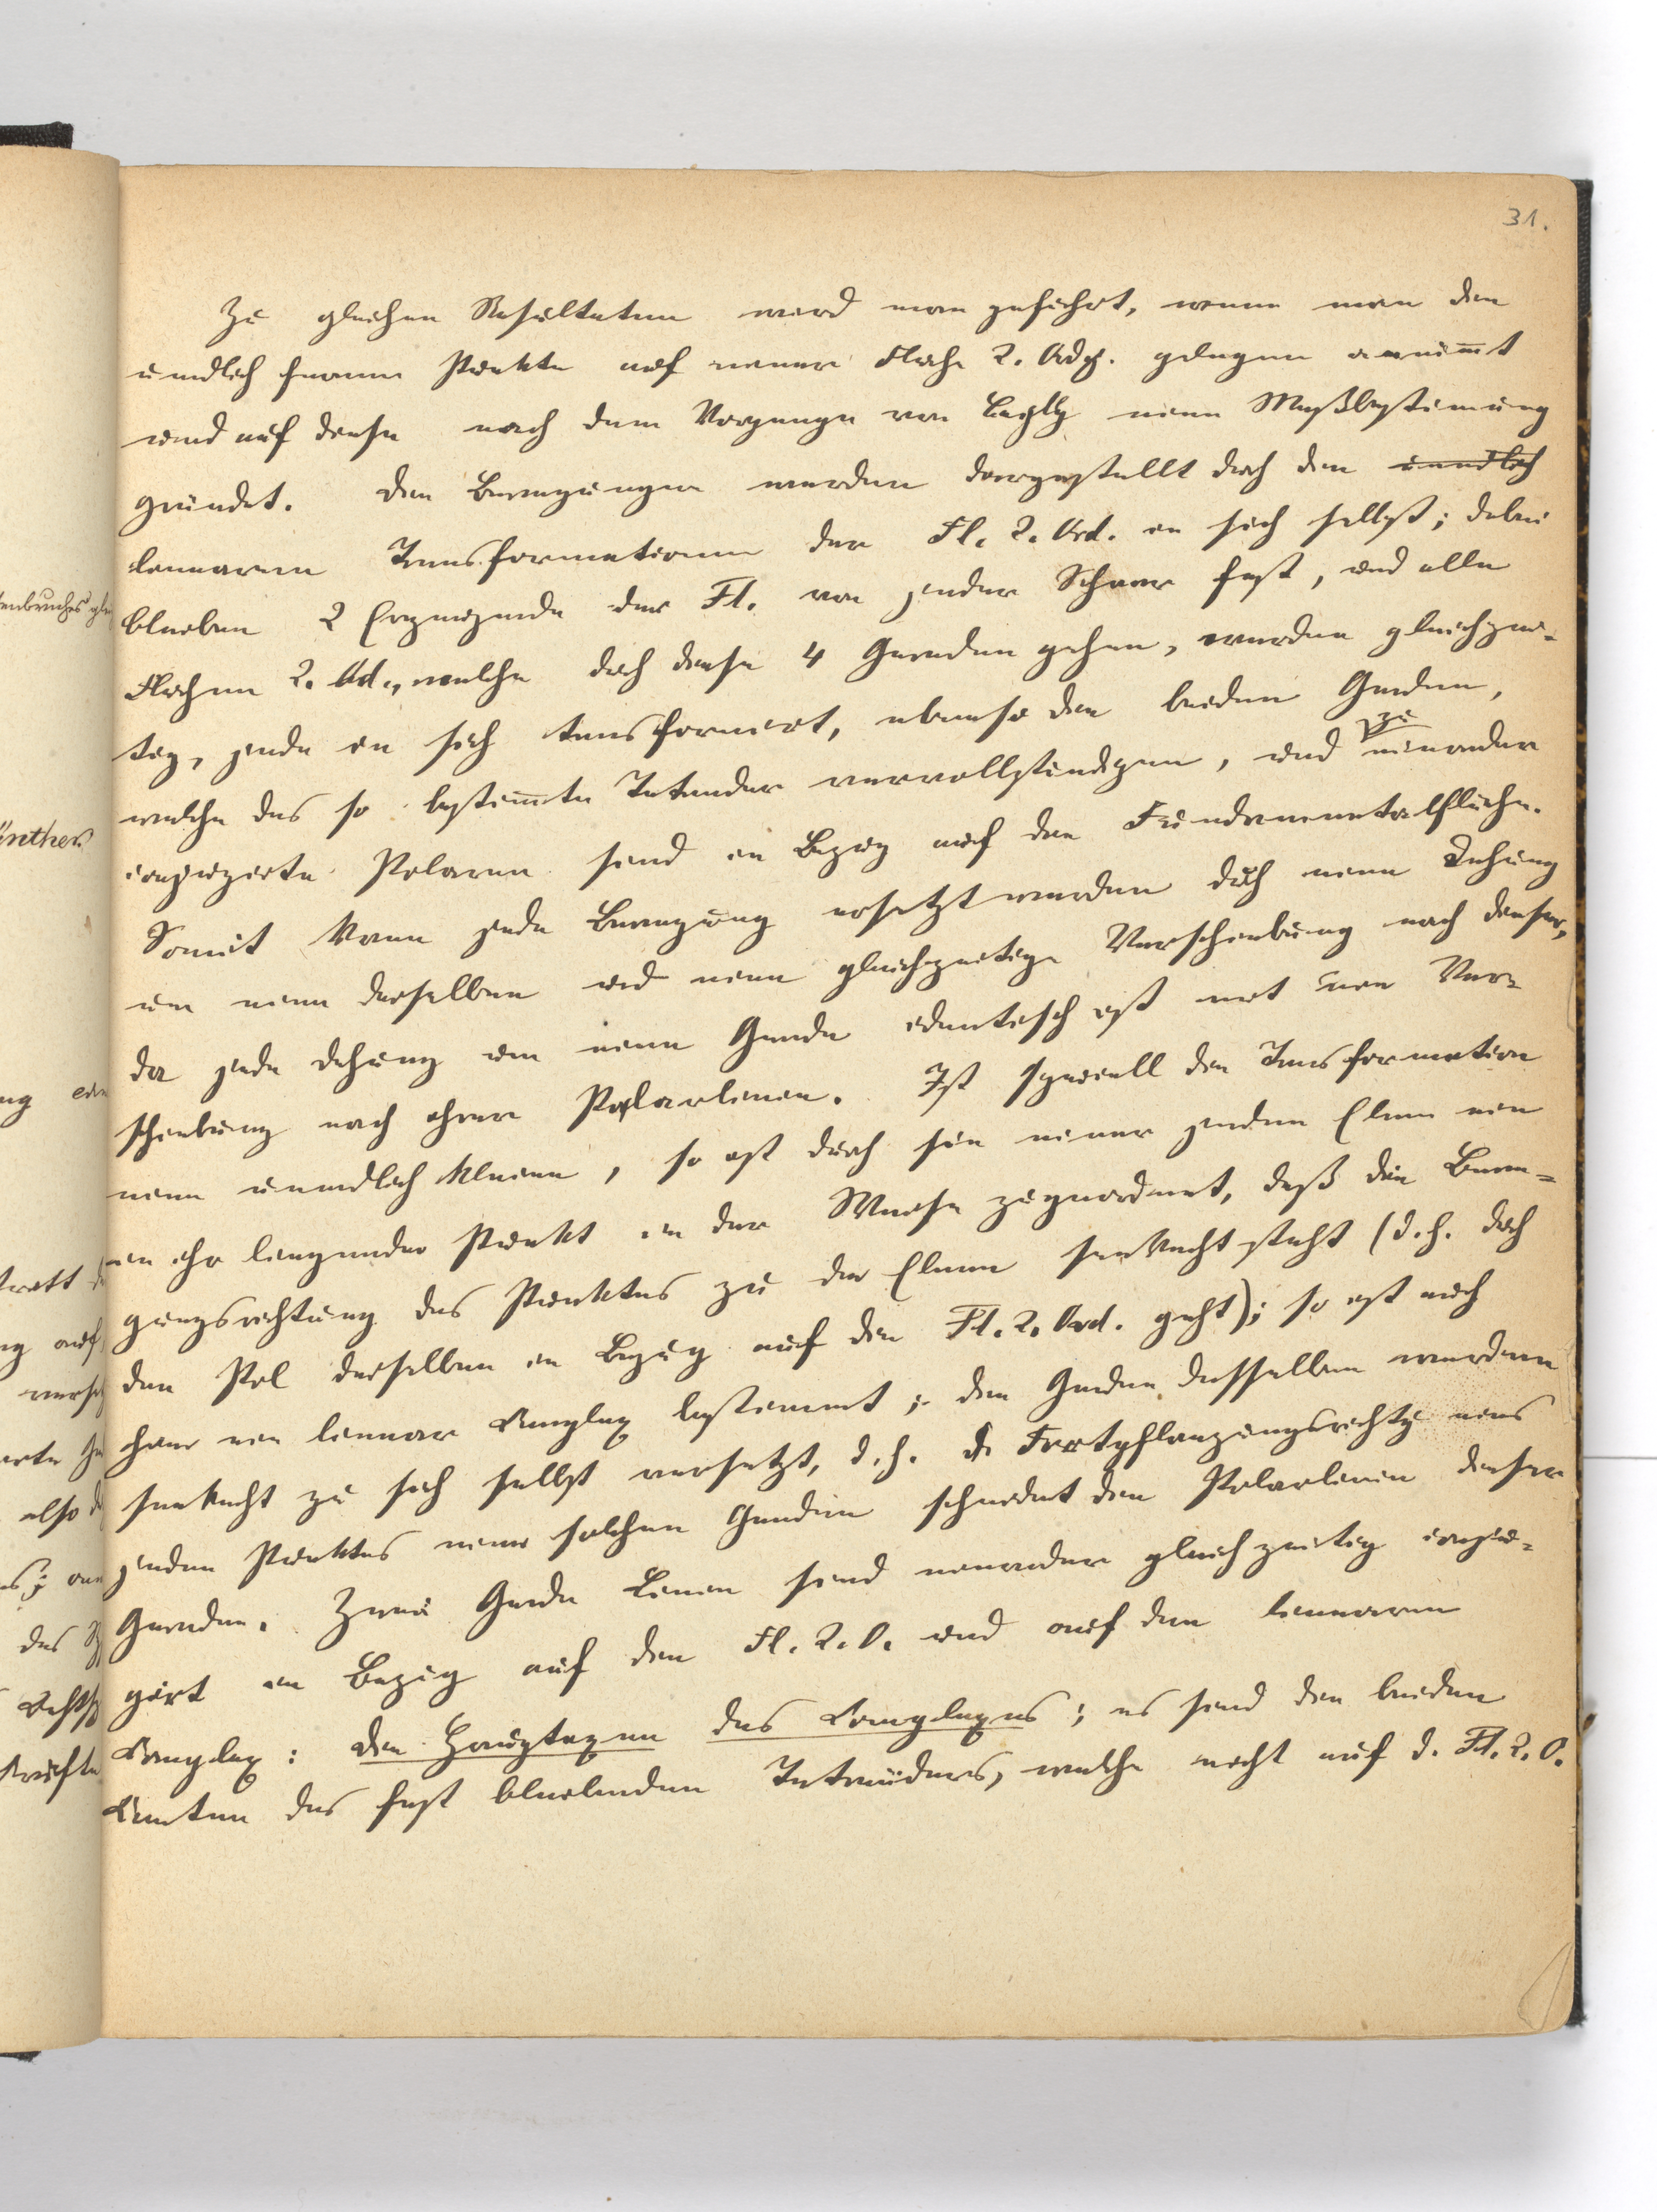 31.
Zu gleichen Resultaten wird man geführt, wenn man die
unendlich fernen Punkte auf einer Fläche 2. Odg. gelegen annim̅t
und auf diese nach dem Vorgange von Cayley eine Maßbestimung
gründet. Die Bewegungen werden dargestellt durch die unendlich
linearen Transformationen der Fl. 2. Ord. in sich selbst; dabei
bleiben 2 Erzeugende der Fl. von jeder Schaar fest, und alle
Flächen 2. Od., welche durch diese 4 Geraden gehen, werden gleichzei-
tig, jede in sich transformiert, ebenso die beiden Geraden,
welche das so bestim̅te Tetraeder vervollständigen, und zu einander
conjugirte Polaren sind in Bezug auf die Fundamentalfläche.
Somit kann jede Bewegung ersetzt werden durch eine Drehung
um eine derselben und eine gleichzeitige Verschiebung nach dieser,
da jede Drehung um eine Gerade identisch ist mit einer Ver-
schiebung nach ihrer Polarlinien. Ist speciell die Transformation
eine unendlich kleine, so ist durch sie einer jeden Ebene ein
in ihr liegender Punkt in der Weise zugeordnet, daß die Bewe-
gungsrichtung des Punktes zu der Ebene senkrecht steht (d. h. durch
den Pol derselben in Bezug auf die Fl. 2. Ord. geht); so ist auch
hier ein linear Complex bestimmt; die Geraden desselben werden
senkrecht zu sich selbst versetzt, d. h. die Fortpflanzungsrichtg eines
jeden Punktes einer solchen Geraden schneidet die Polarlinien dieser
Geraden. Zwei Gerade Linien sind einander gleichzeitig conju-
girt in Bezug auf die Fl. 2. O. und auf den linearen
Complex: die Hauptaxen des Complexes; es sind die beiden
Kanten des fest bleibenden Tetraëders, welche nicht auf d. Fl. 2. O.